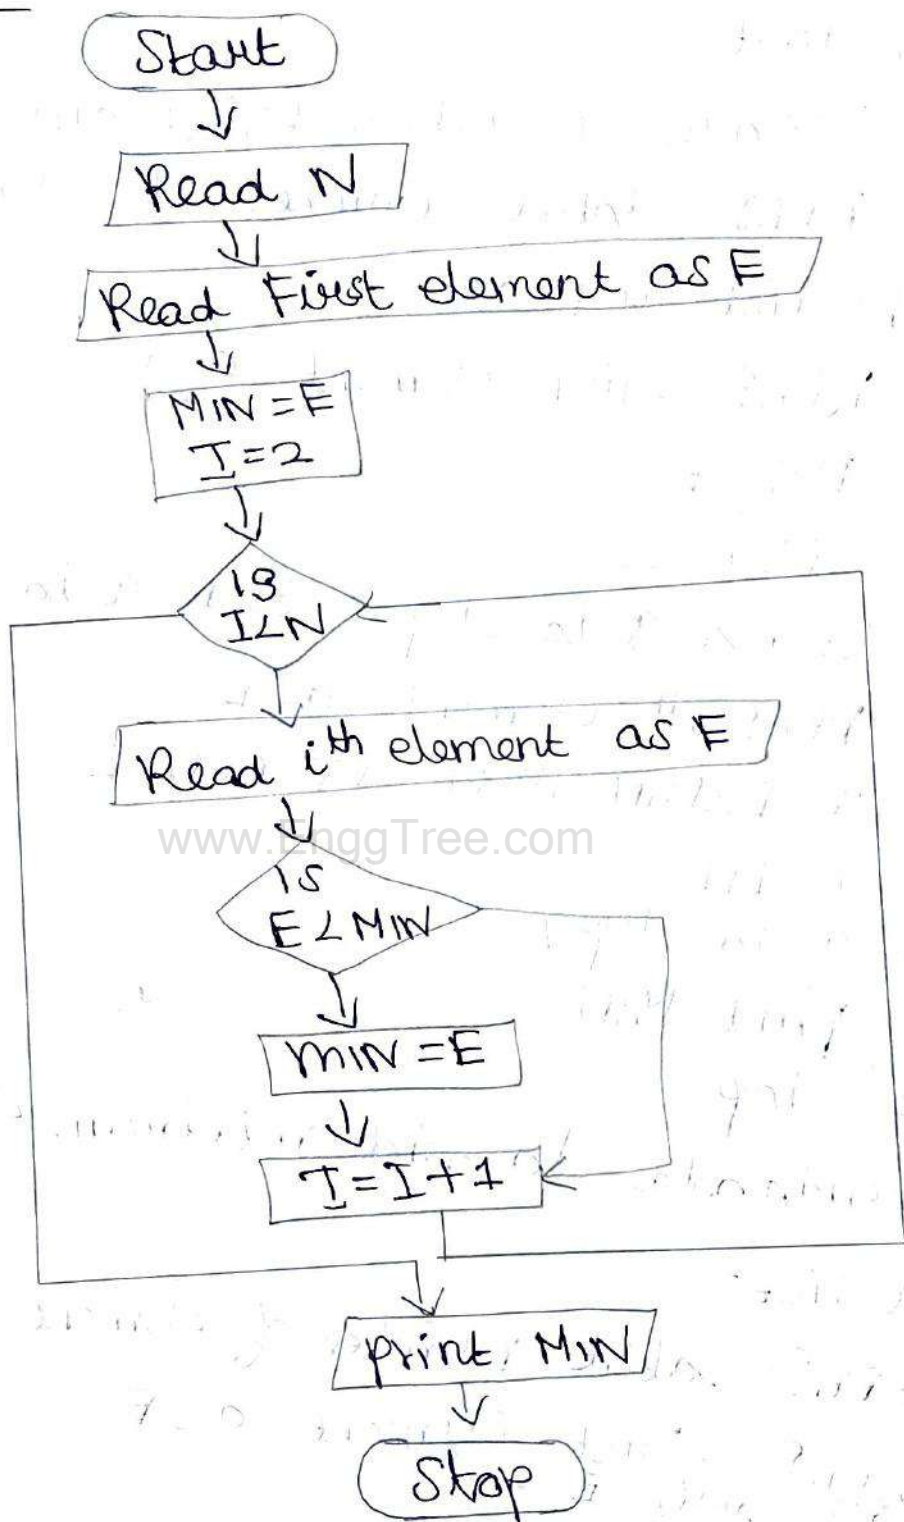 Start
Read N
Read First element as E
MIN = E
I = 2
is
I < N
Read ith element as E
www.EnggTree.com
is
E < MIN
MIN = E
I = I + 1
print MIN
Stop